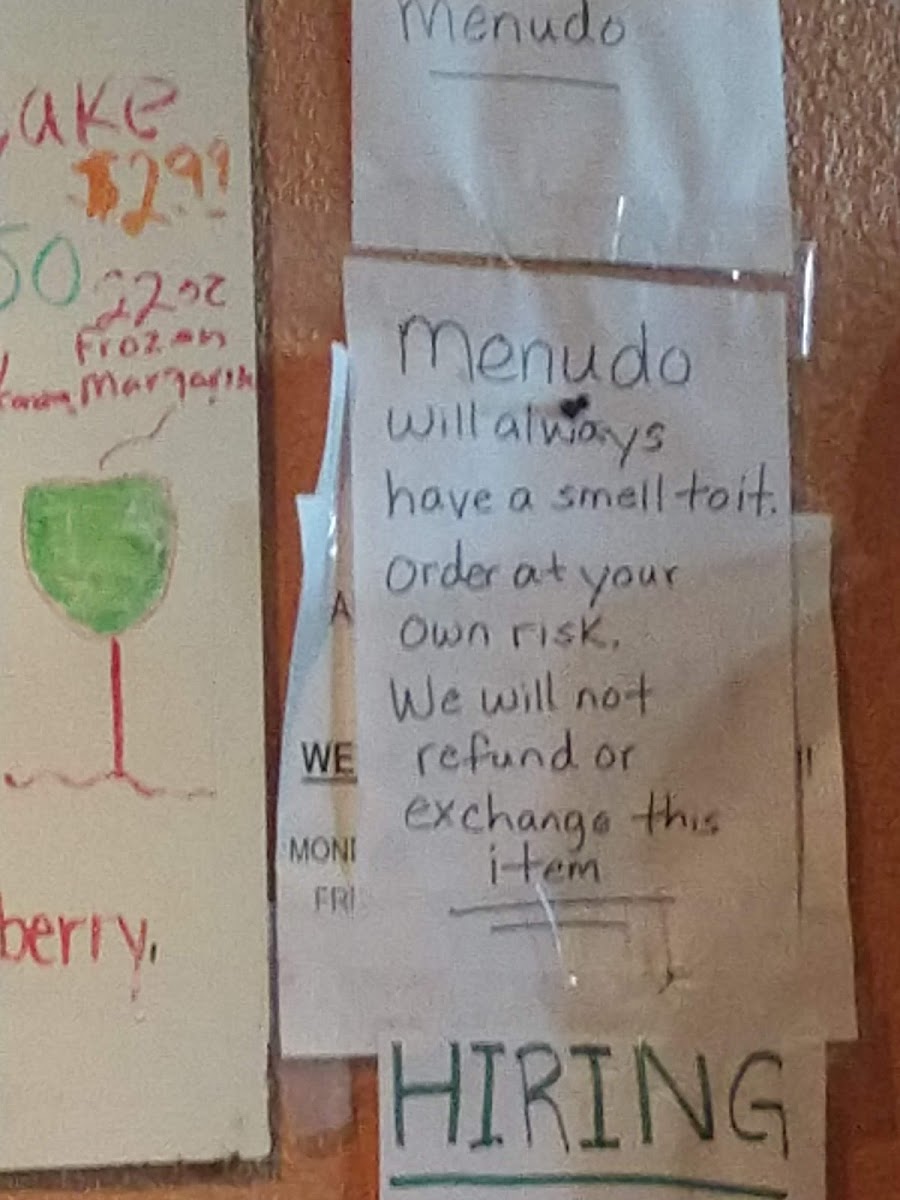 Menudo
ake
$2.99
50 22oz
Frozen
Margarita
berry.
Menudo
Will always
have a smell to it.
Order at your
own risk.
We will not
refund or
exchange this
item
A
WE
MON
FRI
HIRING